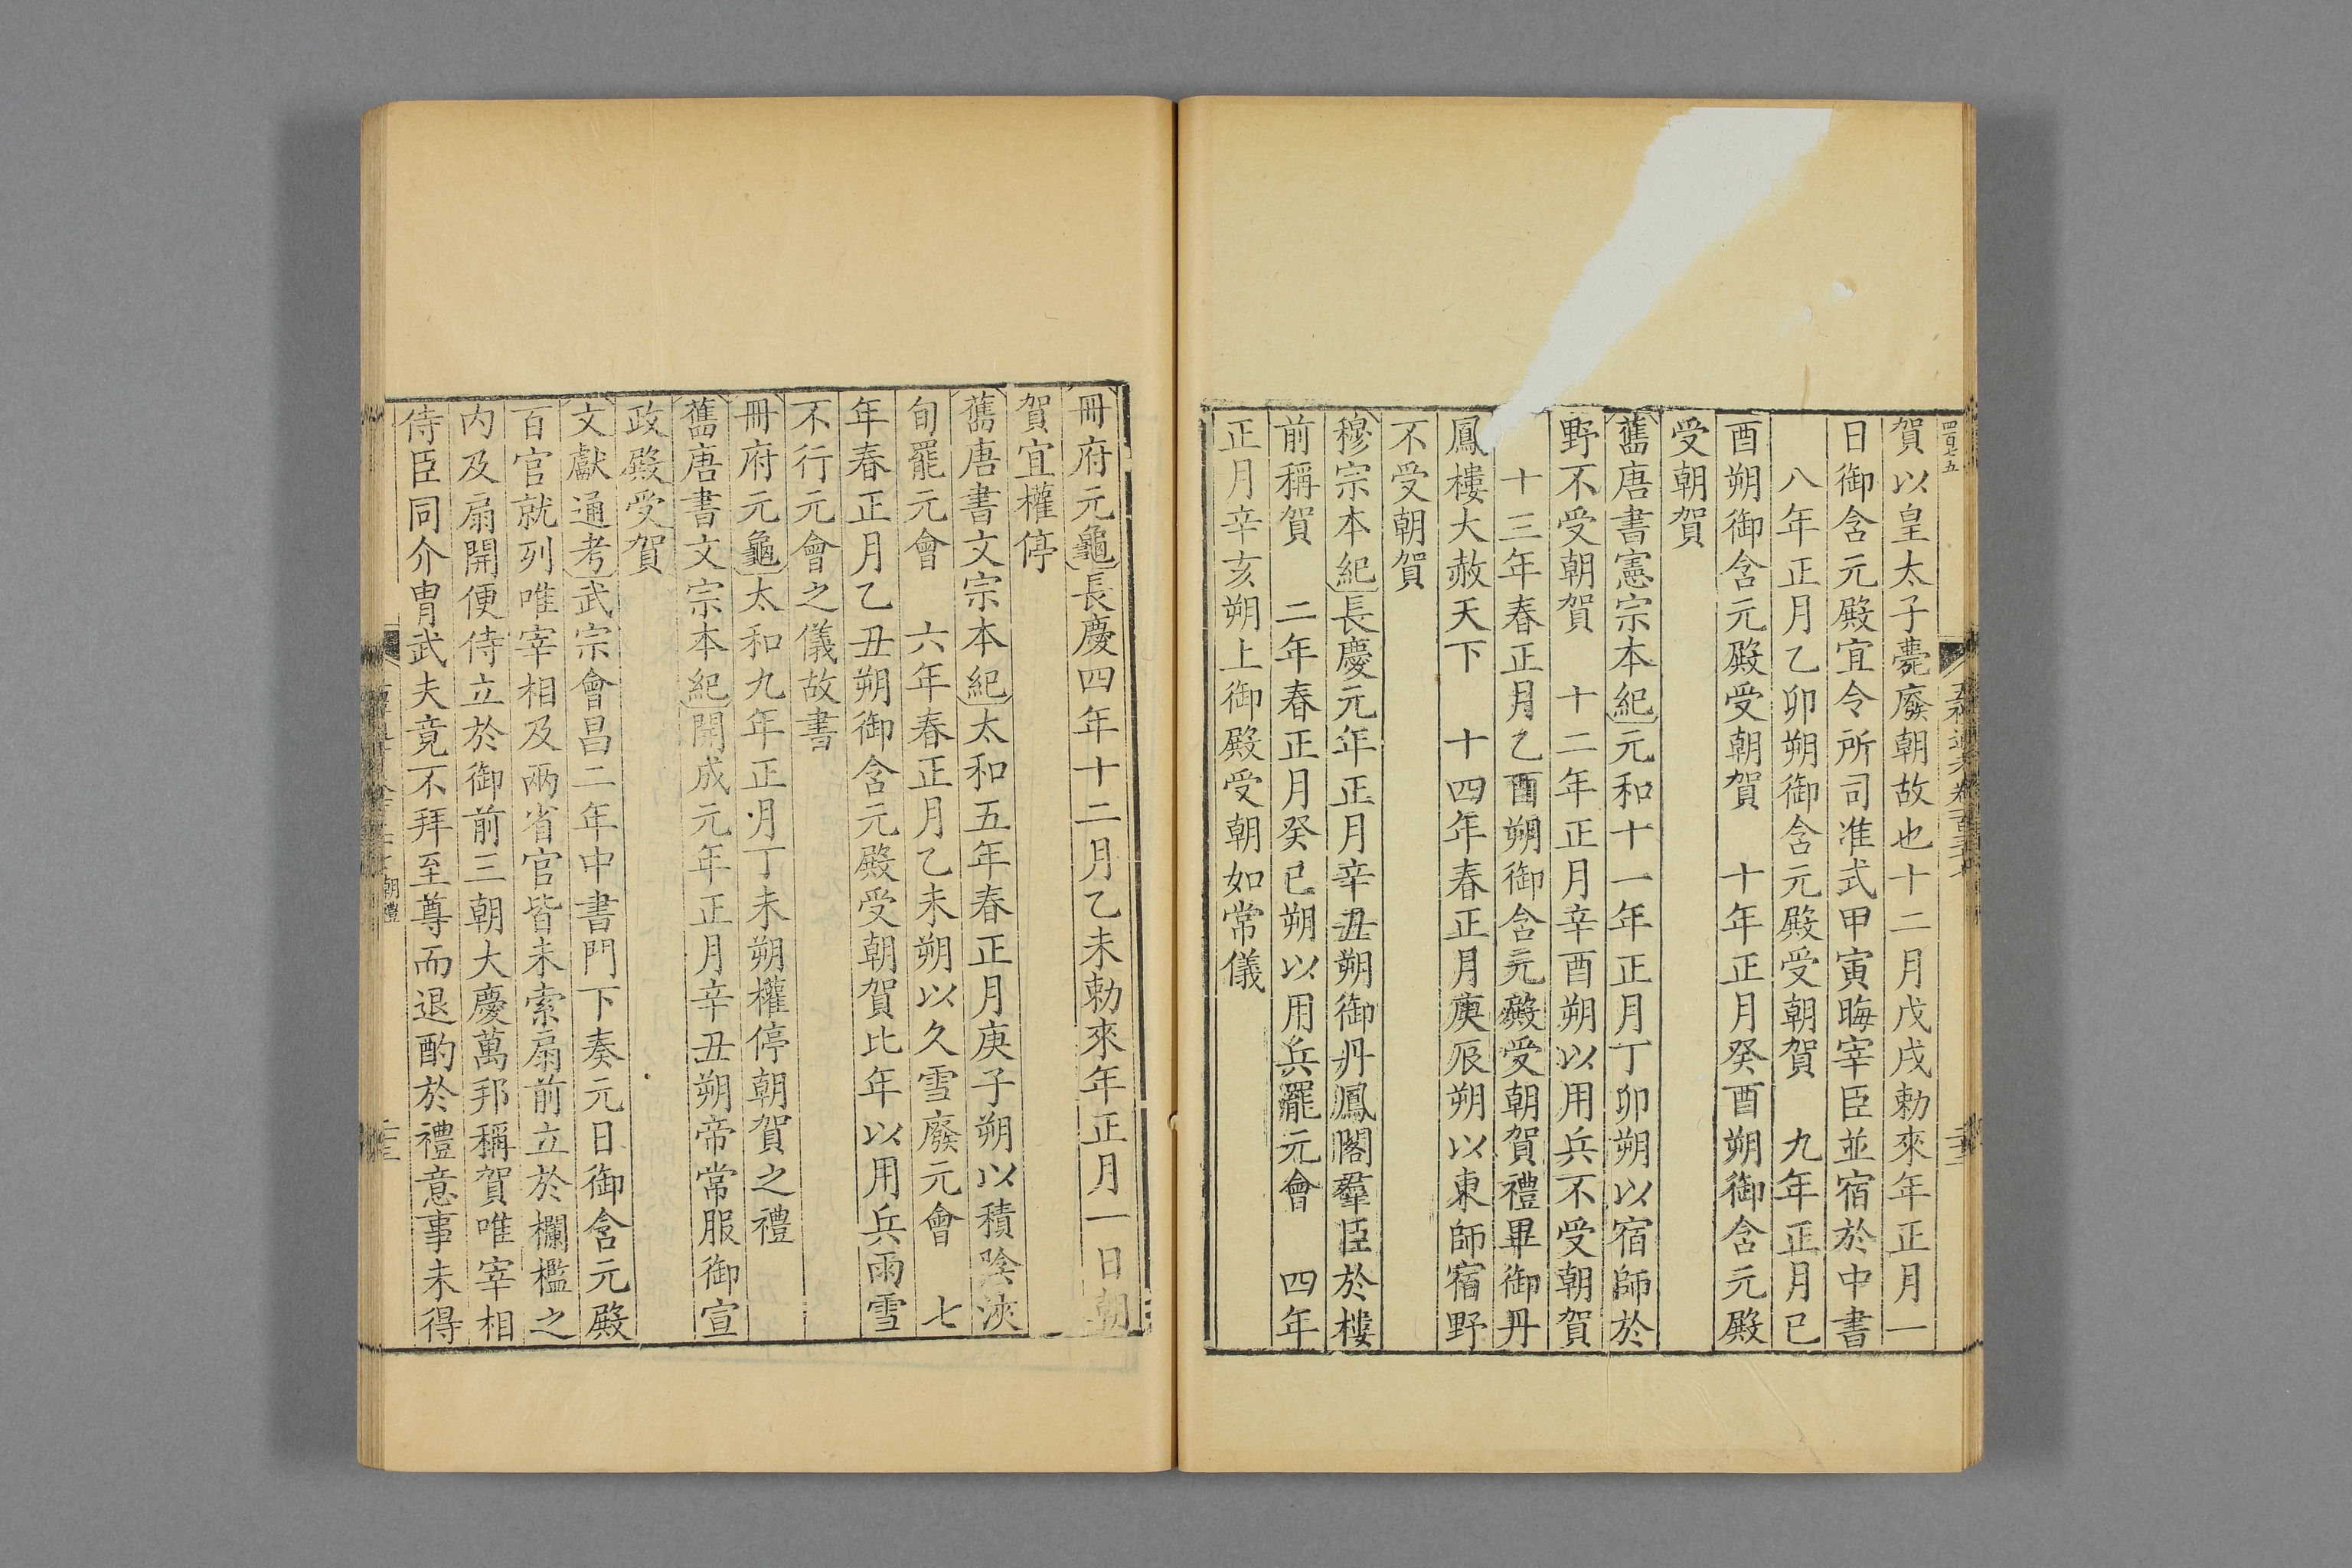 四百七五
賀以皇太子薨廢朝故也十二月戊戌勅來年正月一
日御含元殿宜令所司准式甲寅晦宰臣並宿於中書
八年正月乙卯朔御含元殿受朝賀　九年正月己
酉朔御含元殿受朝賀　十年正月癸酉朔御含元殿
受朝賀
舊唐書憲宗本紀元和十一年正月丁卯朔以宿師於
野不受朝賀　十二年正月辛酉朔以用兵不受朝賀
十三年春正月乙酉朔御含元殿受朝賀禮畢御丹
鳳樓大赦天下　十四年春正月庚辰朔以東師宿野
不受朝賀
穆宗本紀長慶元年正月辛丑朔御丹鳳閣羣臣於樓
前稱賀　二年春正月癸巳朔以用兵罷元會　四年
正月辛亥朔上御殿受朝如常儀
冊府元龜長慶四年十二月乙未勅來年正月一日朝
賀宜權停
舊唐書文宗本紀太和五年春正月庚子朔以積陰浹
旬罷元會　六年春正月乙未朔以久雪廢元會　七
年春正月乙丑朔御含元殿受朝賀比年以用兵雨雪
不行元會之儀故書
冊府元龜太和九年正月丁未朔權停朝賀之禮
舊唐書文宗本紀開成元年正月辛丑朔帝常服御宣
政殿受賀
文獻通考武宗會昌二年中書門下奏元日御含元殿
百官就列唯宰相及兩省官皆未索扇前立於欄檻之
内及扇開便侍立於御前三朝大慶萬邦稱賀唯宰相
侍臣同介冑武夫竟不拜至尊而退酌於禮意事未得
朝禮